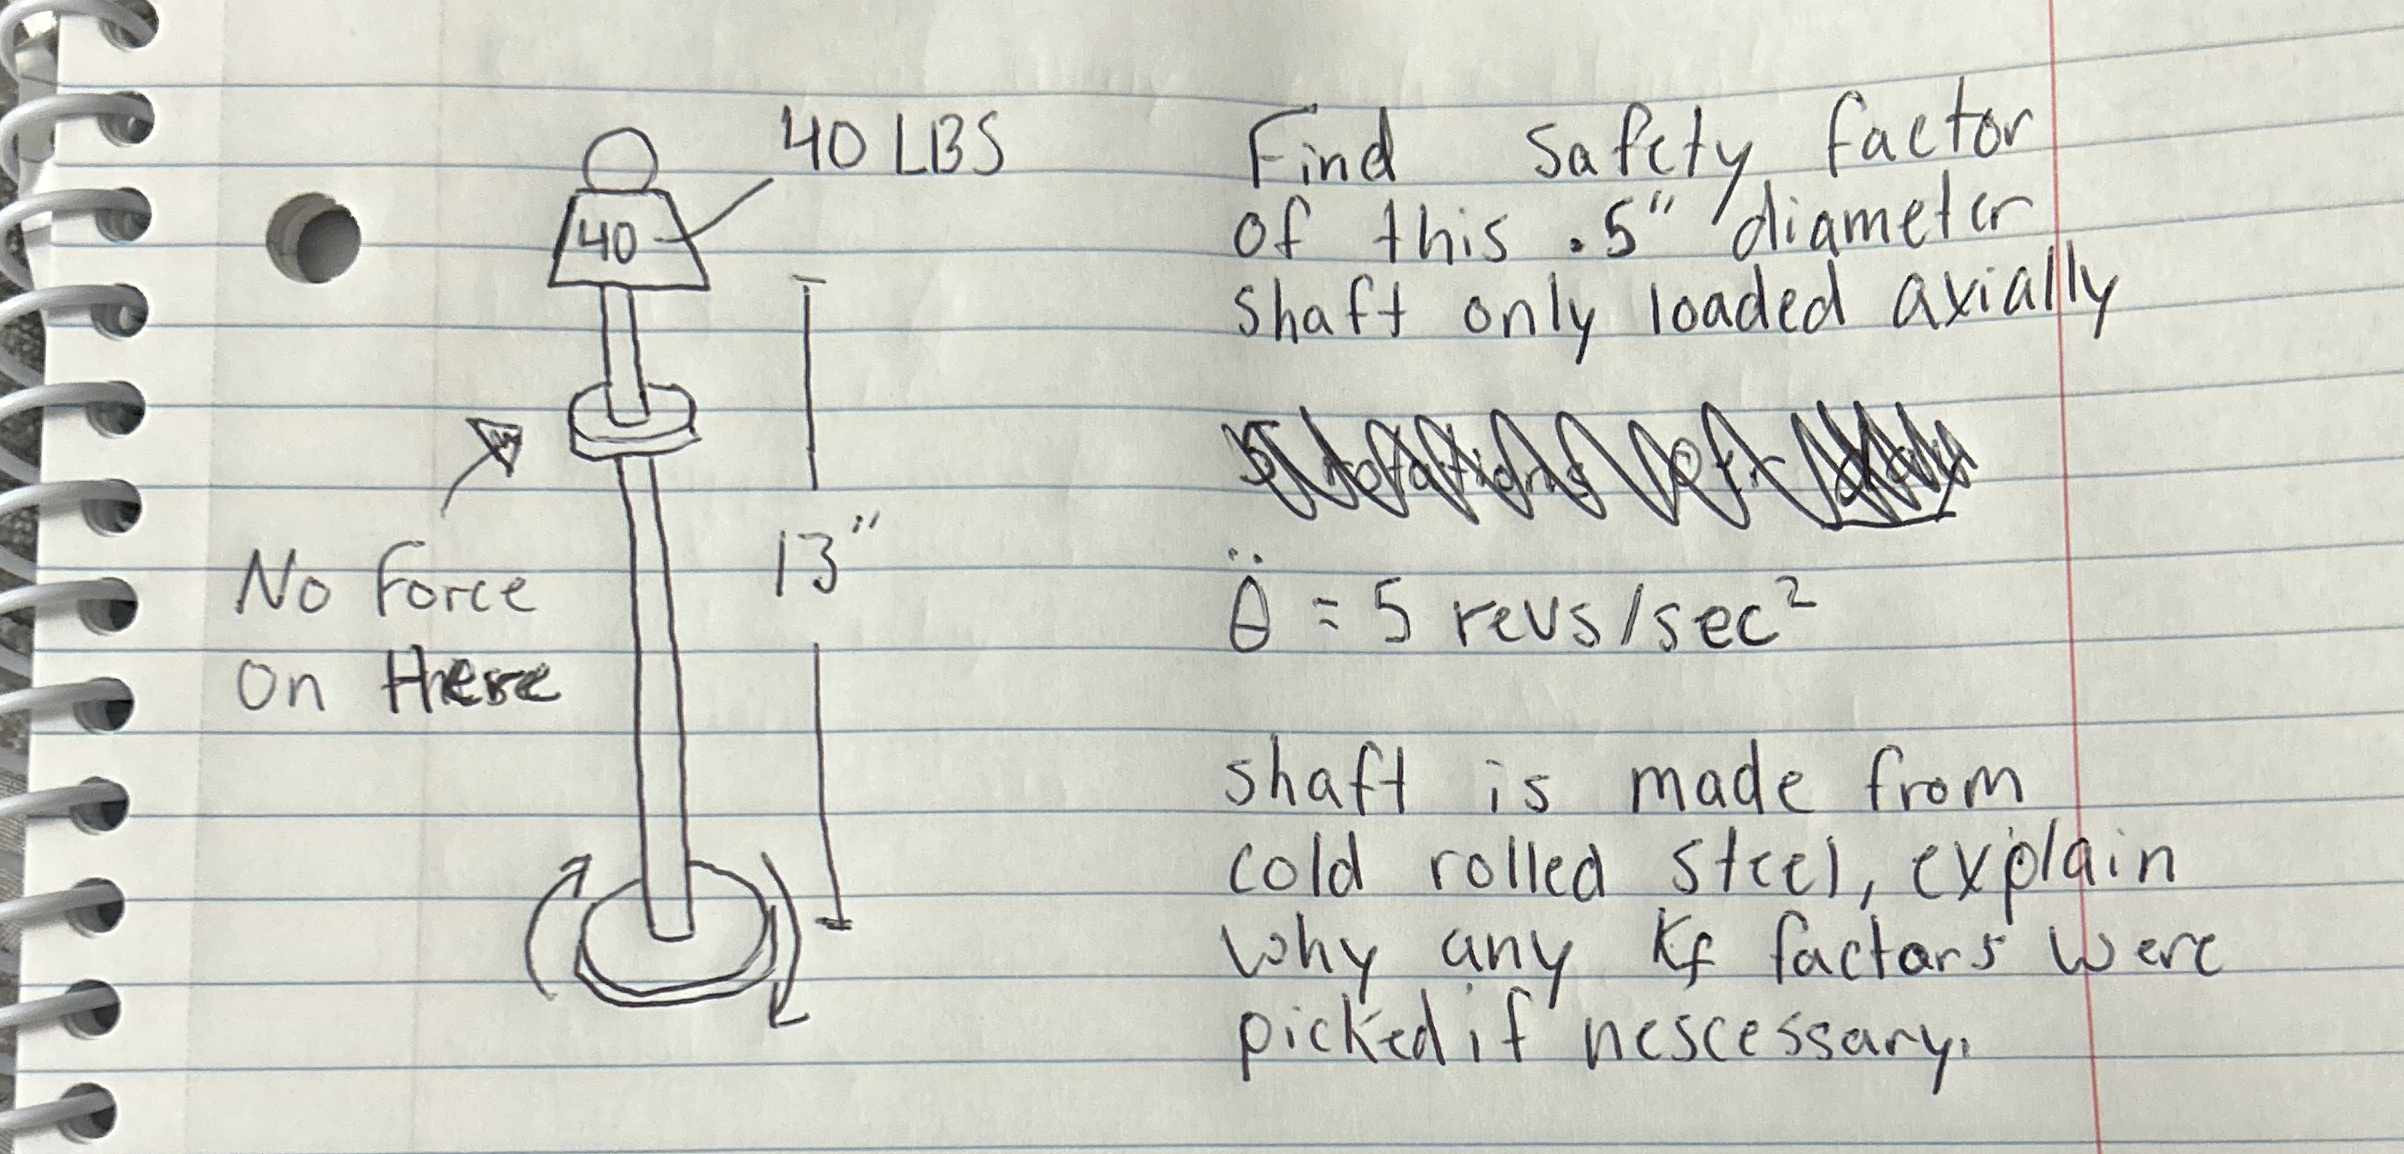 40 LBS
40
13"
No force
on these
Find safety factor
of this .5" diameter
shaft only loaded axially
θ̈ = 5 revs/sec²
shaft is made from
cold rolled steel, explain
why any Kf factors were
picked if nescessary.